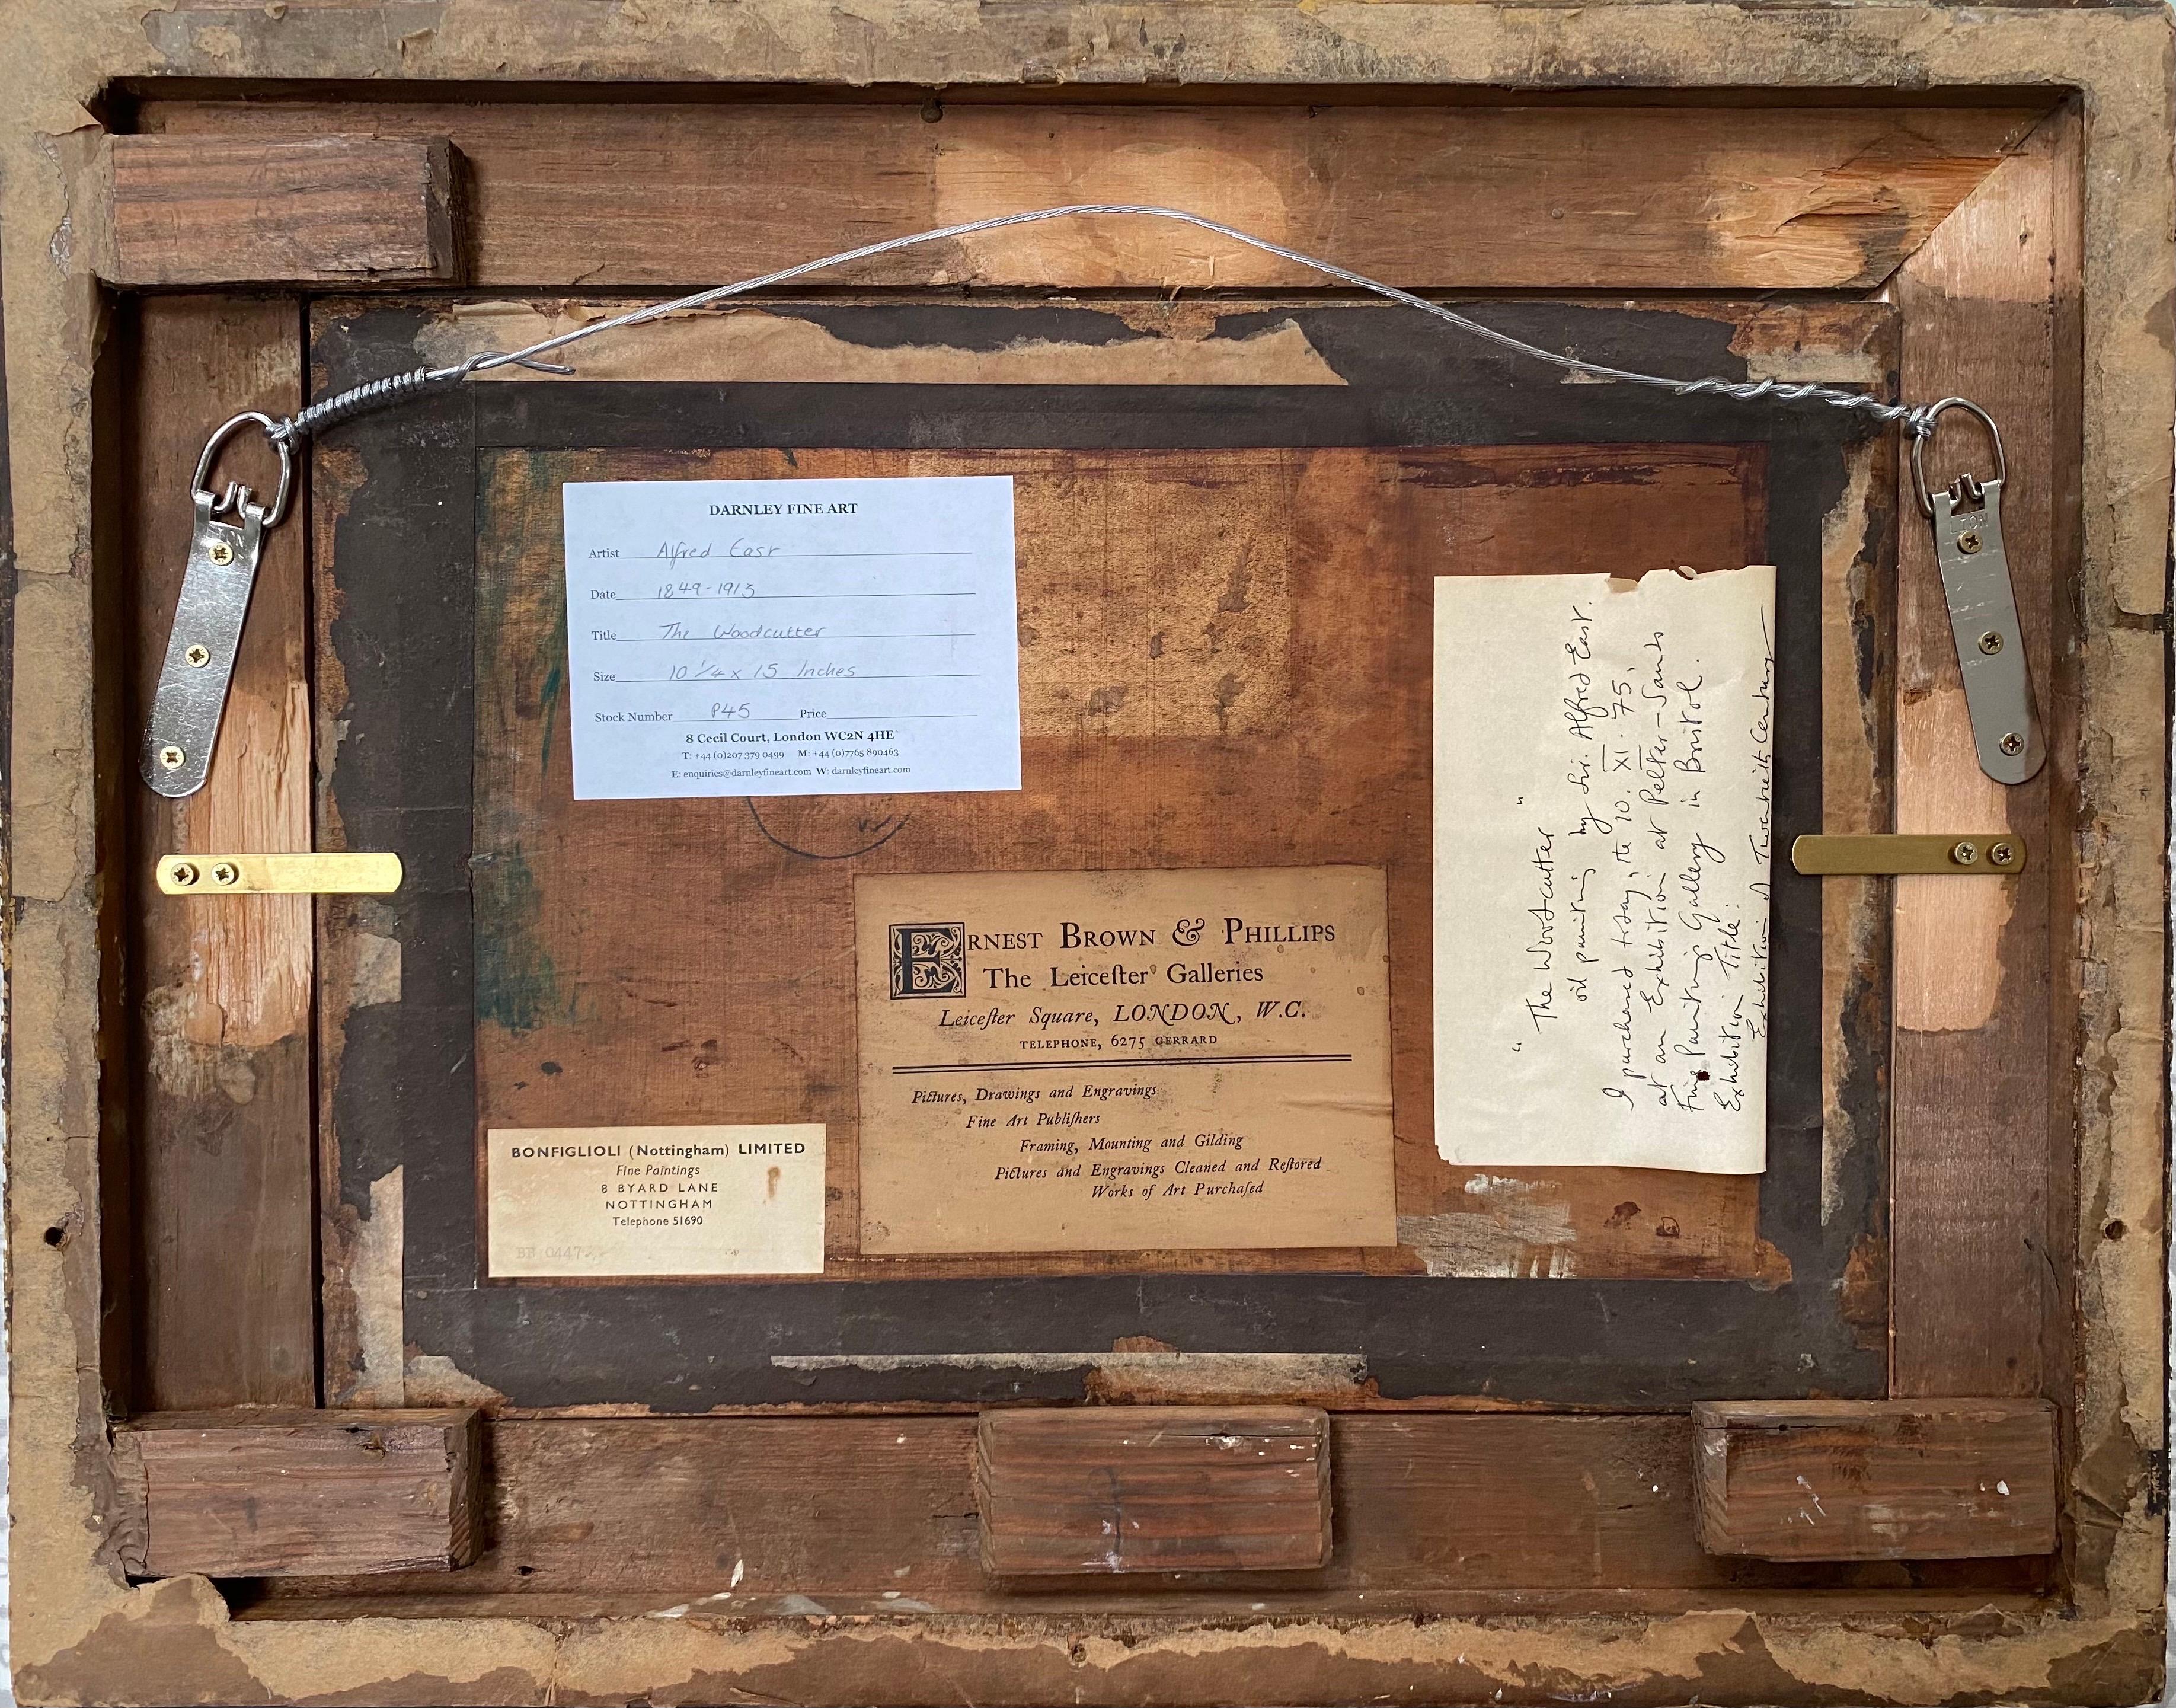 DARNLEY FINE ART
Artist Alfred East
Date 1849-1913
Title The Woodcutter
Size 10 1/4 x 15 Inches
Stock Number P45 Price
8 Cecil Court, London WC2N 4HE
T: +44 (0)207 379 0499 M: +44 (0)7765 890463
E: enquiries@darnleyfineart.com W: darnleyfineart.com
ERNEST BROWN & PHILLIPS
The Leiceſter Galleries
Leiceſter Square, LONDON, W.C.
TELEPHONE, 6275 GERRARD
Pictures, Drawings and Engravings
Fine Art Publiſhers
Framing, Mounting and Gilding
Pictures and Engravings Cleaned and Reſtored
Works of Art Purchaſed
BONFIGLIOLI (Nottingham) LIMITED
Fine Paintings
8 BYARD LANE
NOTTINGHAM
Telephone 51690
BB 0447
"The Woodcutter"
oil painting by Sir. Alfred East.
I purchased today, the 10. XI. 75,
at an Exhibition at Pelter-Sands
Fine Painting Gallery in Bristol.
Exhibition Title:
Exhibition of Twentieth Century